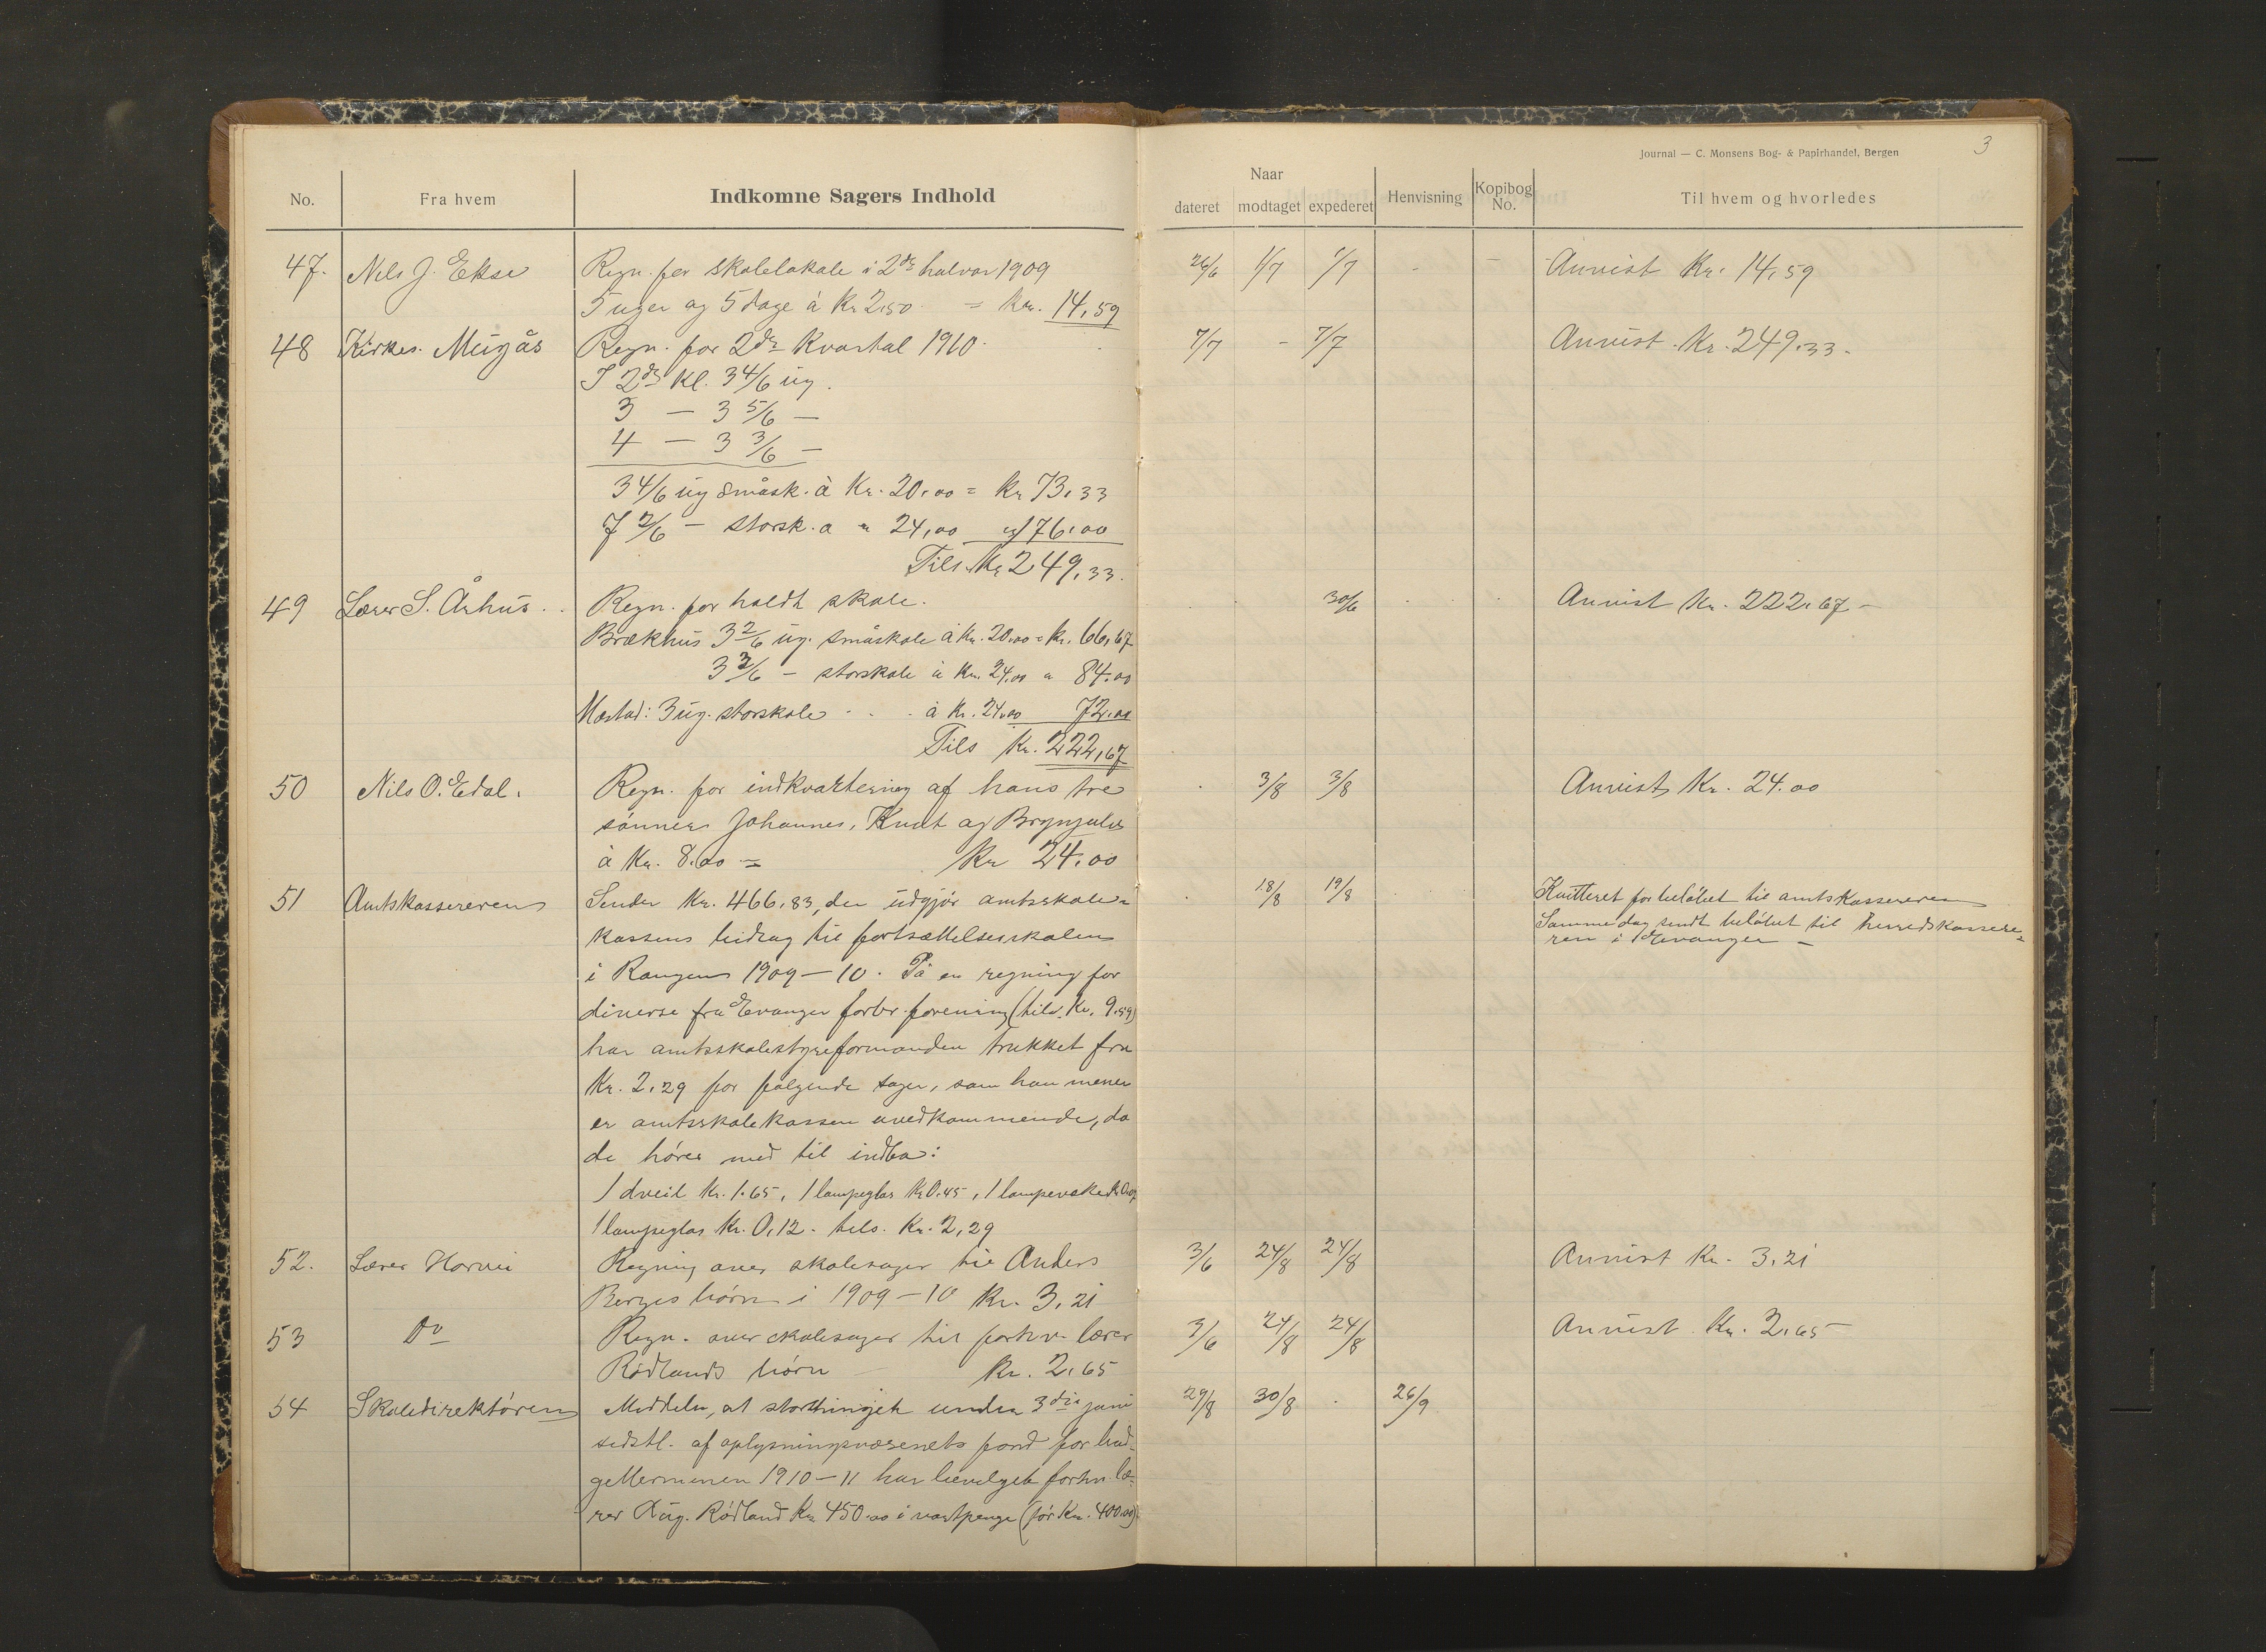 Journal — C. Monsens Bog- & Papirhandel, Bergen
3
No. Fra hvem Indkomne Sagers Indhold
Naar
dateret modtaget expederet Henvisning Kopibog No. Til hvem og hvorledes
47. Nils J. Ekse Regn. for skolelokale i 2det halvaar 1909 26/6 1/7 7/7 Anvist Kr. 14,59
5 uger og 5 dage à Kr 2.50 = kr. 14,59
48 Kirkes. Mugås Regn. for 2det Kvartal 1910. 7/7 - 7/7 Anvist Kr. 249.33.
I 2den Kl. 3 4/6 ug.
3 — 3 5/6 —
4 — 3 3/6 —
3 4/6 ug småsk. à Kr. 20,00 = kr 73,33
7 2/6 — storsk. a " 24,00 " 176,00
Tils. Kr 249,33.
49 Lærer S. Århus. Regn. for holdt skole. 30/6 Anvist Kr. 222,67 -
Brækhus 3 2/6 ug. småskole à Kr. 20.00 = Kr. 66,67
3 3/6 — storskole à Kr. 24.00 " 84.00
Mæstad: 3 ug. storskole . . . à Kr. 24.00 72.00
Tils Kr. 222,67
50 Nils O. Edal. Regn. for indkvartering af hans tre 3/8 3/8 Anvist Kr. 24.00
sønner Johannes, Knut og Brynjulv
à Kr. 8.00 = Kr 24.00
51 Amtskassereren Sender Kr. 466,83, der udgjör amtsskole= 18/8 19/8 Kvitteret for belöbet til amtskassereren
kassens bidrag til fortsættelsesskolen Samme dag sendt belöbet til herredskassere=
ren i Evanger —
i Rangen 1909—10. På en regning for
diverse fra Evanger forbr. forening (tils. Kr. 9.59)
har amtsskolestyreformanden trukket fra
Kr. 2.29 for følgende sager, som han mener
er amtsskolekassen uvedkommende, da
de hører med til indbo:
1 dveil Kr. 1.65, 1 lampeglas Kr 0.45, 1 lampevæke Kr 0.07
1 lampeglas Kr. 0,12. tils. Kr. 2,29
52. Lærer Horvei Regning over skolesager til Anders 3/6 24/8 24/8 Anvist Kr. 3.21
Berges børn i 1909—10 Kr. 3.21
53 Do Regn. over skolesager til forhv. lærer 3/6 24/8 24/8 Anvist Kr. 2.65
Rödlands börn Kr. 2.65
54 Skoledirektören Meddeler, at storthinget under 3die juni 29/8 30/8 . 26/9
sidstl. af oplysningsvæsenets fond for bud=
getterminen 1910—11 har bevilget forhv. læ=
rer Aug. Rödland Kr 450.00 i vartpenge (för Kr. 400.00)